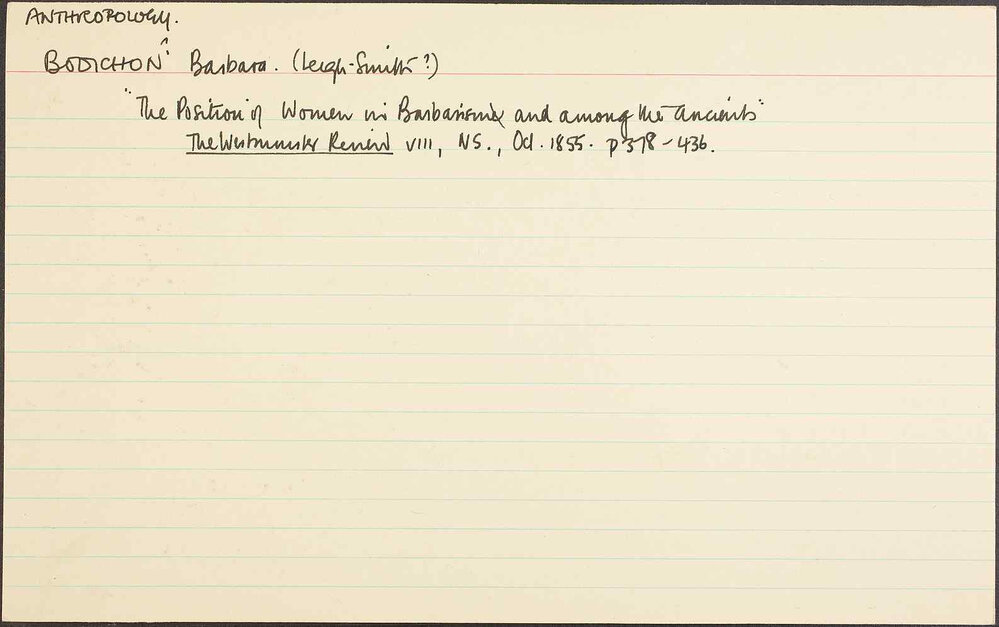 ANTHROPOLOGY.
BODICHON? Barbara. (Leigh-Smith?)
"The Position of Women in Barbarism and among the Ancients"
The Westminster Review VIII, NS., Oct. 1855. p 378-436.